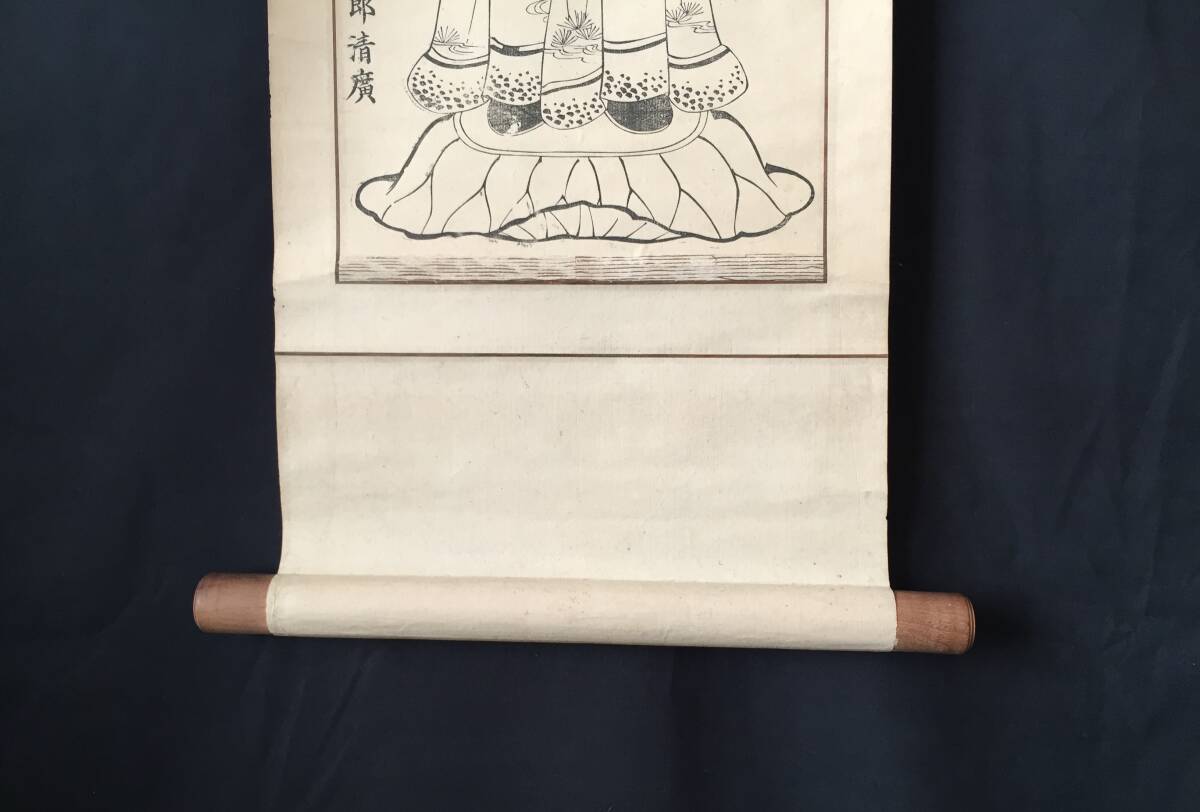 郎清廣